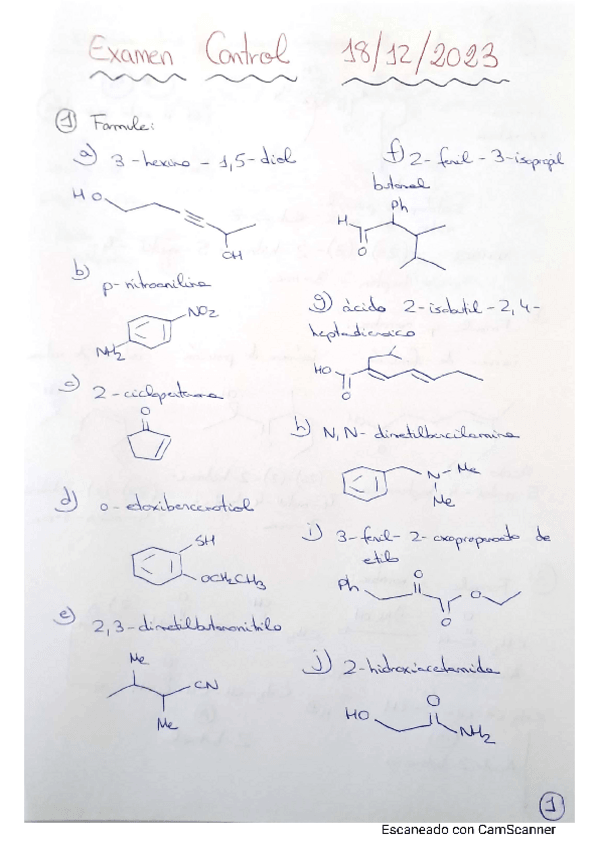 Examen Control 18/12/2023
1 Formule:
a) 3-hexino-1,5-diol
HO
OH
b) p-nitroanilina
NO2
NH2
c) 2-ciclopentenona
O
d) o-etoxibencenotiol
SH
OCH2CH3
e) 2,3-dimetilbutanonitrilo
Me
CN
Me
f) 2-fenil-3-isopropil
butanal
Ph
H
O
g) ácido 2-isobutil-2,4-
heptadienoico
HO
O
h) N,N-dimetilbencilamina
N-Me
Me
i) 3-fenil-2-oxopropanoato de
etilo
Ph
O
O
O
j) 2-hidroxiacetamida
HO
O
NH2
1
Escaneado con CamScanner